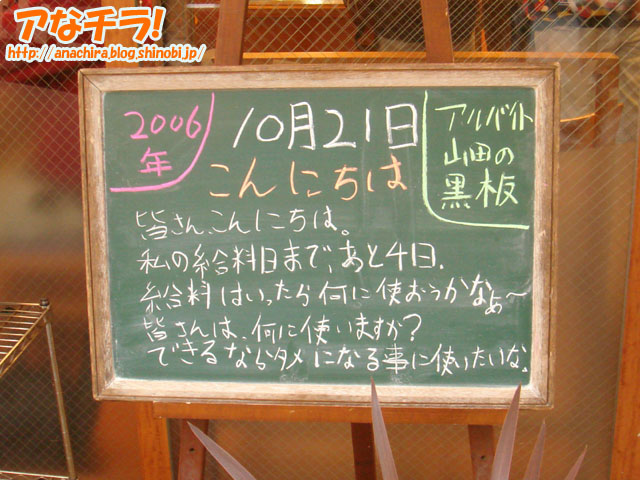 アなチラ!
http://anachira.blog.shinobi.jp/
2006
年
10月21日
こんにちは
アルバイト
山田の
黒板
皆さん、こんにちは。
私の給料日まで、あと4日.
給料はいったら何に使おうかなぁ〜
皆さんは、何に使いますか?
できるならタメになる事に使いたいな。